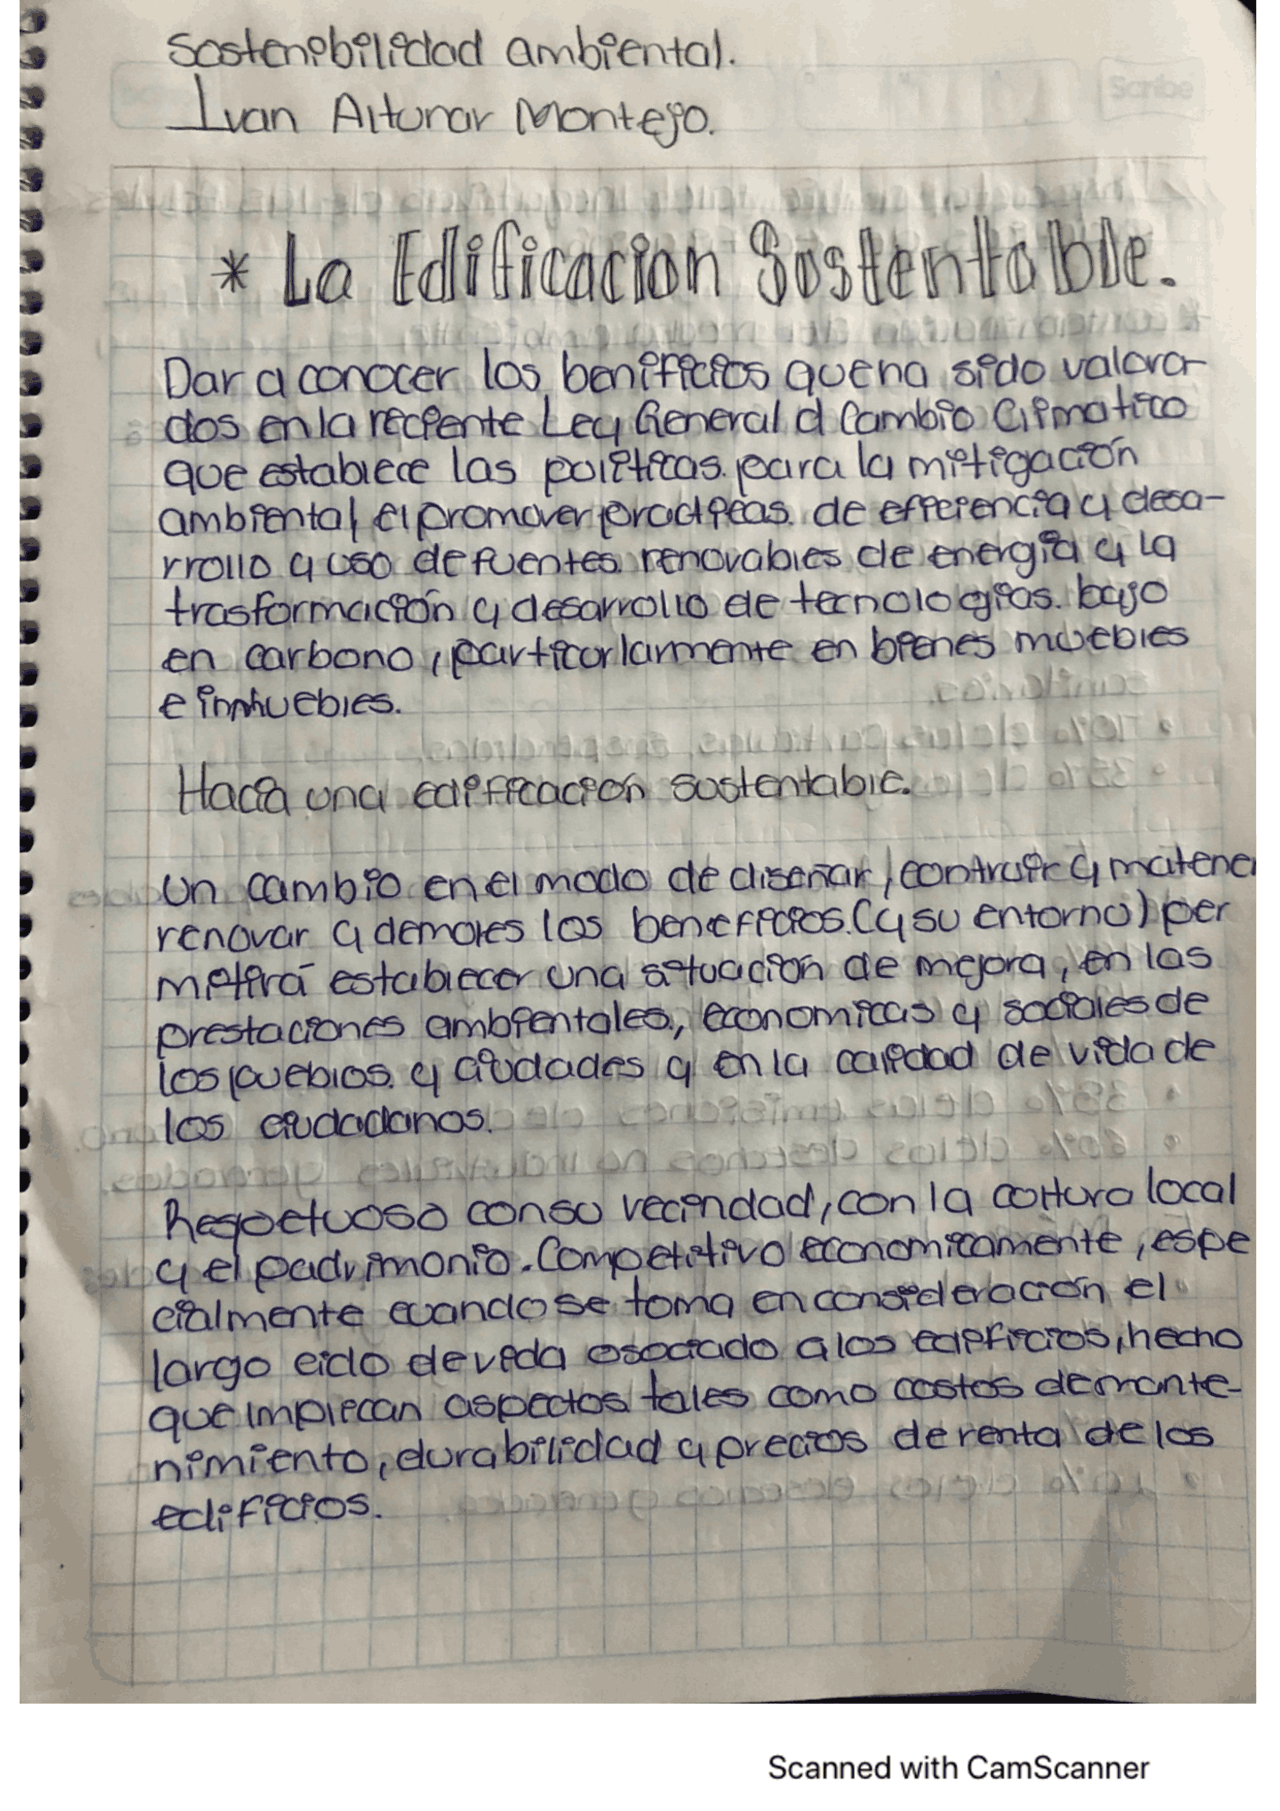 Sostenibilidad ambiental.
Ivan Altunar Montejo.
Scribe
* La Edificacion Sustentable.
Dar a conocer los benificios que ha sido valora-
dos en la reciente Ley General d Cambio Climatico
que establece las politicas para la mitigación
ambiental, el promover practicas de eficiencia y desa-
rrollo y uso de fuentes renovables de energia y la
trasformación y desarrollo de tecnologias bajo
en carbono, particurlarmente en bienes muebles
e inmuebles.
Hacia una edificación sustentable.
Un cambio en el modo de diseñar, contruir y matener
renovar y demoles los beneficios (y su entorno) per
mitirá establecer una situación de mejora, en las
prestaciones ambientales, economicas y sociales de
los pueblos y ciudades y en la calidad de vida de
los ciudadanos.
Respetuoso con su vecindad, con la coltura local
y el padrimonio. Competitivo economicamente, espe
cialmente cuando se toma en consideración el
largo ciclo de vida asociado a los edificios, hecho
que implecan aspectos tales como costos de mante-
nimiento, durabilidad y precios de renta de los
edificios.
Scanned with CamScanner